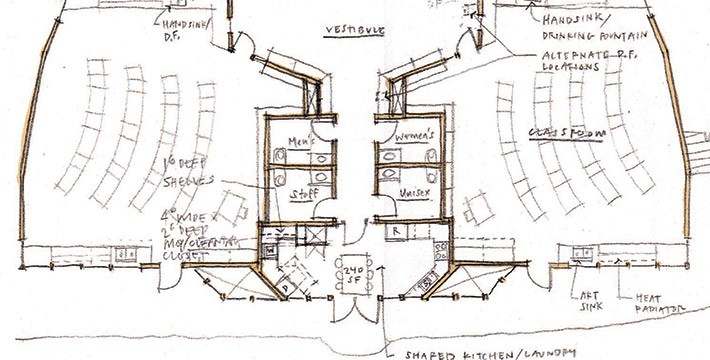 HANDSINK/
D.F.
VESTIBULE
HANDSINK/
DRINKING FOUNTAIN
ALTERNATE D.F.
LOCATIONS
Men's
Women's
CLASSROOM
1'0" DEEP
SHELVES
Staff
Unisex
4'0" WIDE x
2'0" DEEP
MOP/CLEANING
CLOSET
R
W
D
240
SF
ART
SINK
HEAT
RADIATOR
SHARED KITCHEN/LAUNDRY